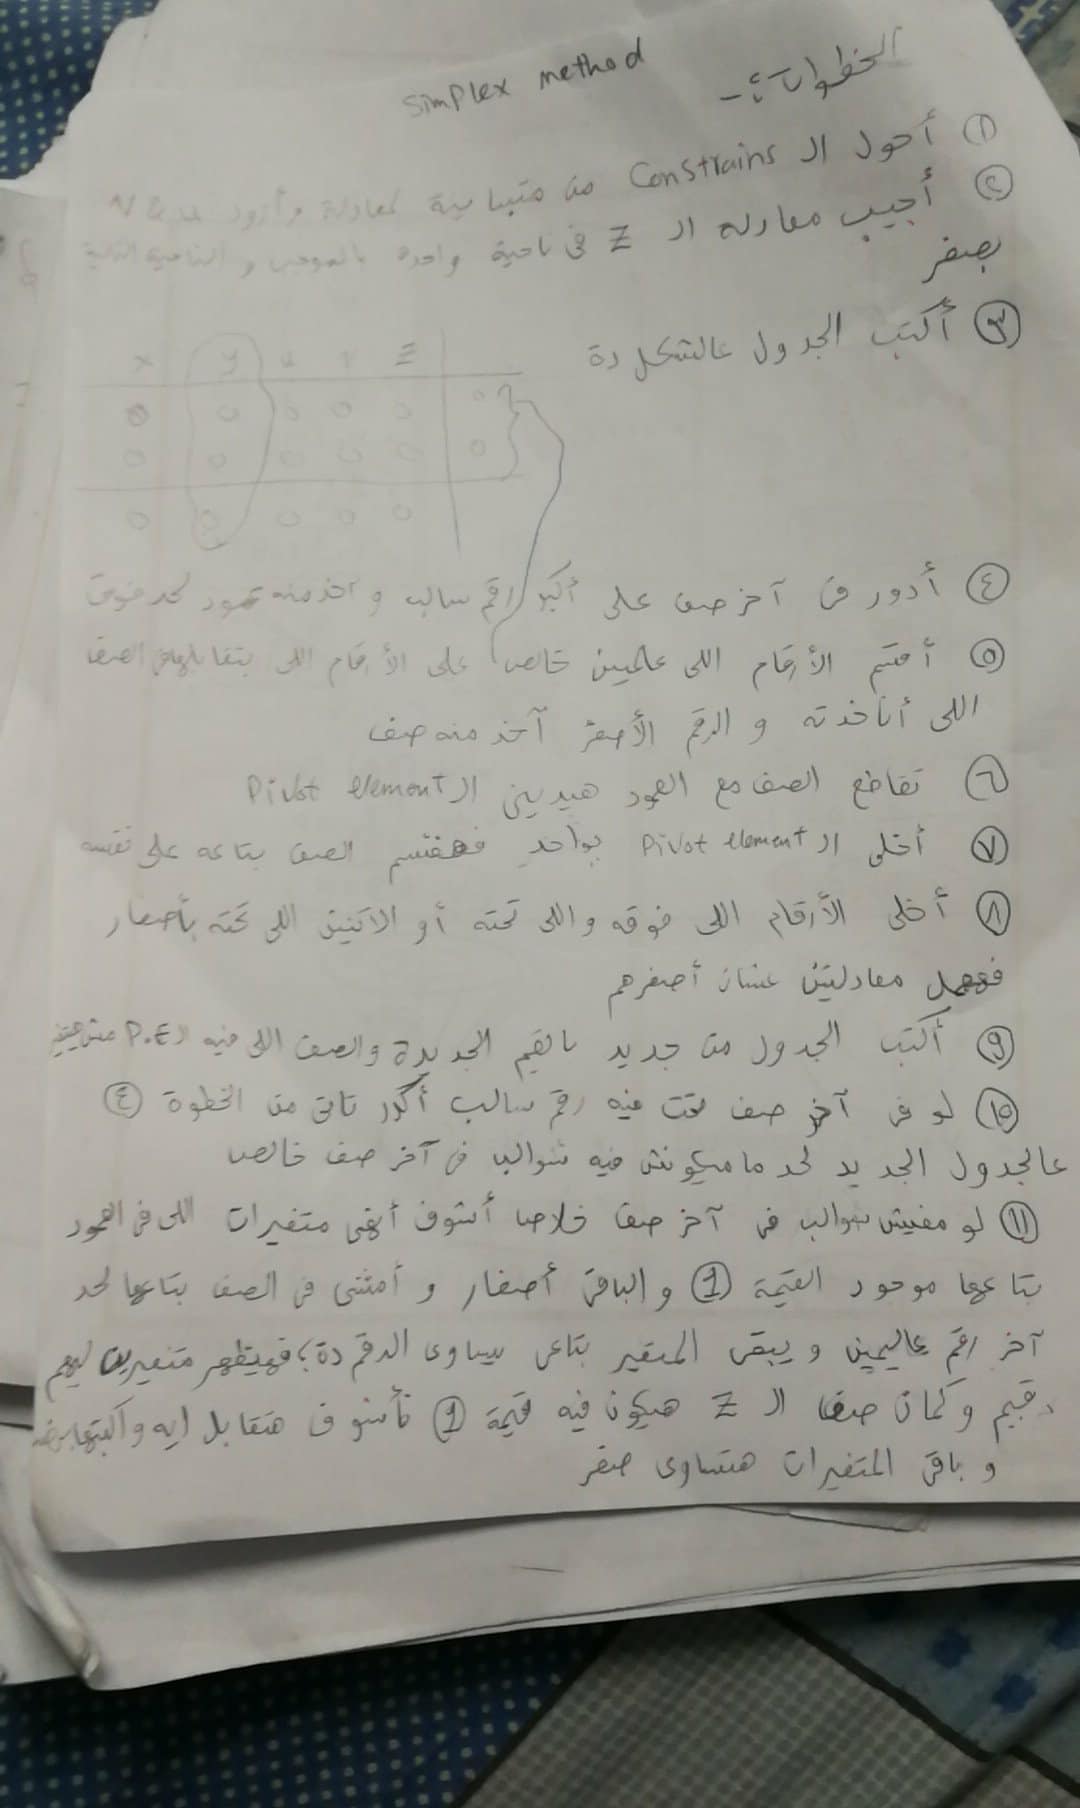 simplex method
الخطوات :-
① أحول الـ Constrains من متباينة لمعادلة وأزود
② أجيب معادلة الـ Z في ناحية واحدة بالموجب و الناحية التانية
بصفر
③ أكتب الجدول عالشكل دة
x y u v Z
0 0 0 0 0 0
0 0 0 0 0 0
0 0 0 0 0
④ أدور في آخر صف على أكبر رقم سالب و آخد منه عمود لحد فوق
⑤ أقسم الأرقام اللي عاليمين خالص على الأرقام اللي بتقابلها في الصف
اللي أنا خدته و الرقم الأصغر آخد منه صف
⑥ تقاطع الصف مع العمود هيديني الـ Pivot element
⑦ أخلي الـ Pivot element بواحد فهقسم الصف بتاعه على نفسه
⑧ أخلي الأرقام اللي فوقه واللي تحته أو الاتنين اللي تحته بأصفار
فهعمل معادلتين عشان أصفرهم
⑨ أكتب الجدول من جديد بالقيم الجديدة والصف اللي فيه الـ P.E مش هيتغير
⑩ لو في آخر صف لقيت فيه رقم سالب أكرر تاني من الخطوة ④
عالجدول الجديد لحد ما ميكونش فيه سوالب في آخر صف خالص
⑪ لو مفيش سوالب في آخر صف خلاص أشوف أنهي متغيرات اللي في العمود
بتاعها موجود القيمة ① والباقي أصفار و أمشي في الصف بتاعها لحد
آخر رقم عاليمين ويبقى المتغير بتاعي بيساوي الرقم دة، فهيظهر متغيرين ليهم
قيم وكمان صف الـ Z هيكون فيه قيمة ① فأشوف هتقابل ايه وأكتبها برضه
و باقي المتغيرات هتساوي صفر